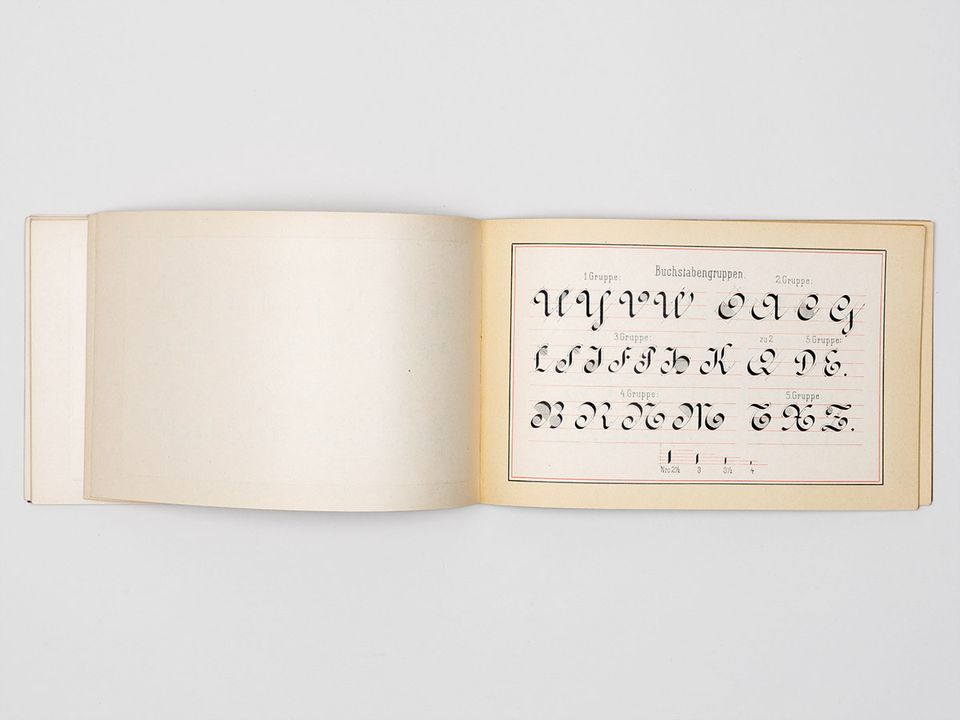 Buchstabengruppen.
1 Gruppe: 2 Gruppe:
U Y V W O A C G
3 Gruppe: zu 2 5 Gruppe:
L S I F P H K Q D E.
4 Gruppe: 5 Gruppe
B R N M T X Z.
Nro 2½ 3 3½ 4